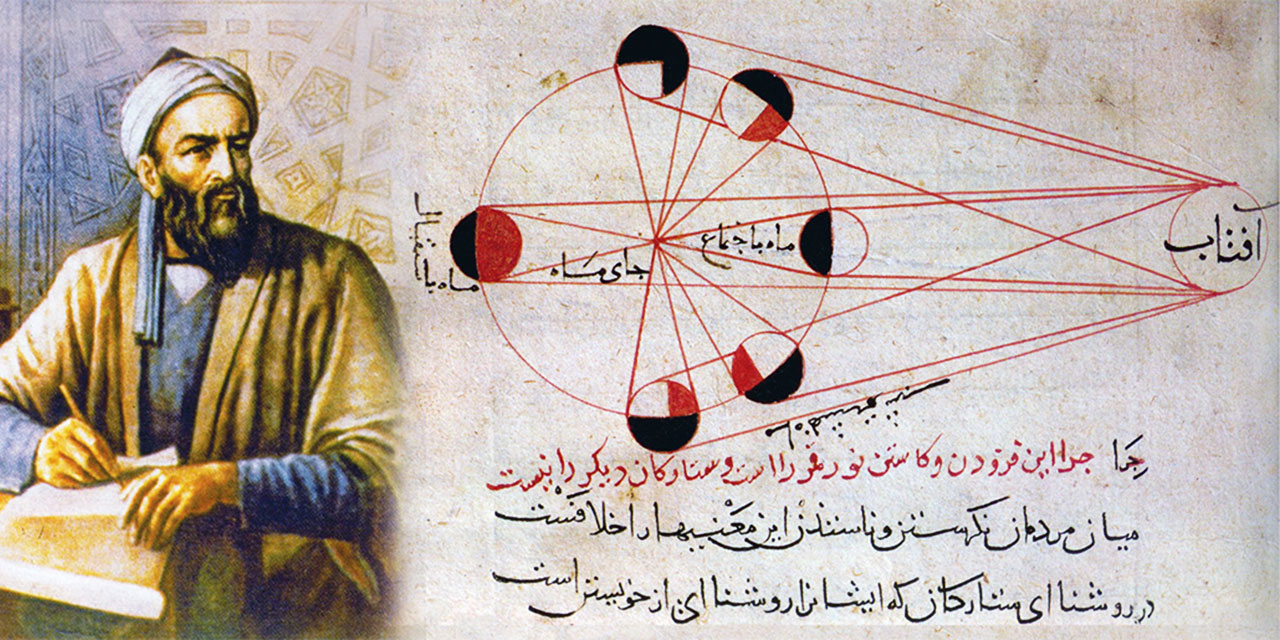 افتاب
ماه باجتماع
جای ماه
ماه باستقبال
چرا چرا این فزودن و کاستن نور قمر را است و ستارکان دیکر را نیست
میان مردمان نکرستن و ناستدن این معنیها را خلافست
در روشنا ای ستارکان که ایشانرا روشنا ای از خویشتن است